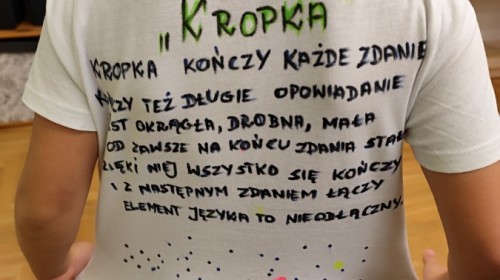 „KROPKA
KROPKA KOŃCZY KAŻDE ZDANIE
KOŃCZY TEŻ DŁUGIE OPOWIADANIE
JEST OKRĄGŁA, DROBNA, MAŁA
OD ZAWSZE NA KOŃCU ZDANIA STAŁA
DZIĘKI NIEJ WSZYSTKO SIĘ KOŃCZY
I Z NASTĘPNYM ZDANIEM ŁĄCZY
ELEMENT JĘZYKA TO NIEODŁĄCZNY.